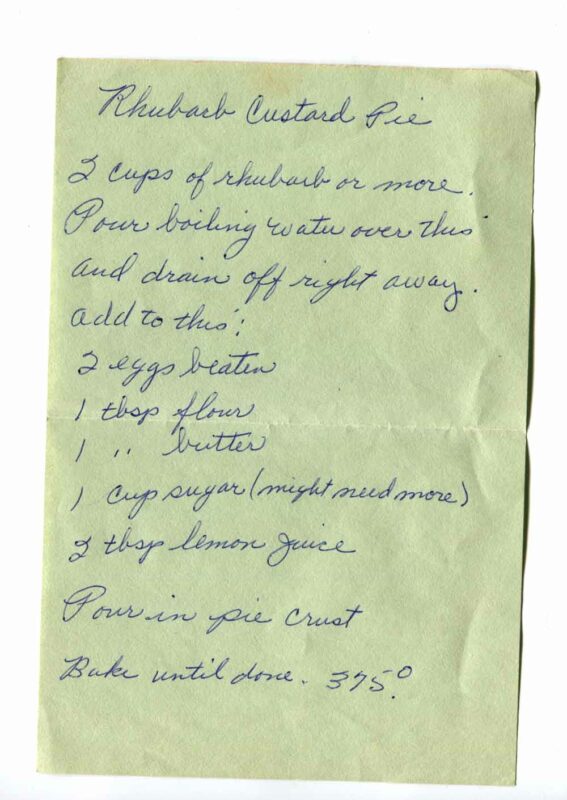 Rhubarb Custard Pie
2 cups of rhubarb or more.
Pour boiling water over this
and drain off right away.
add to this:
2 eggs beaten
1 tbsp flour
1 " butter
1 cup sugar (might need more)
2 tbsp lemon juice
Pour in pie crust
Bake until done. 375°.